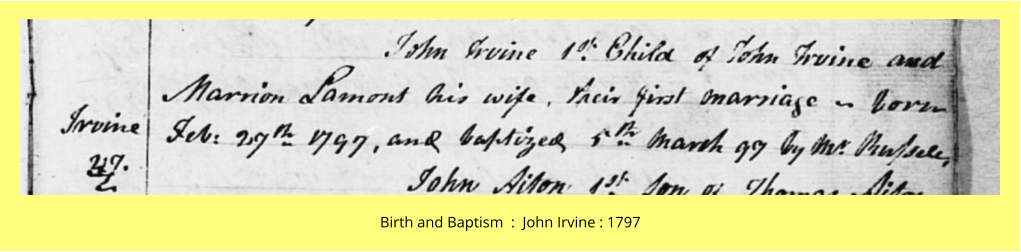 John Irvine 1st Child of John Irvine and
Marrion Lamont his wife, their first marriage born
Irvine
Feb: 27th 1797, and baptized 5th March 97 by Mr Russell,
47.
John Aiton 1st Son of Thomas Aiton
Birth and Baptism : John Irvine : 1797